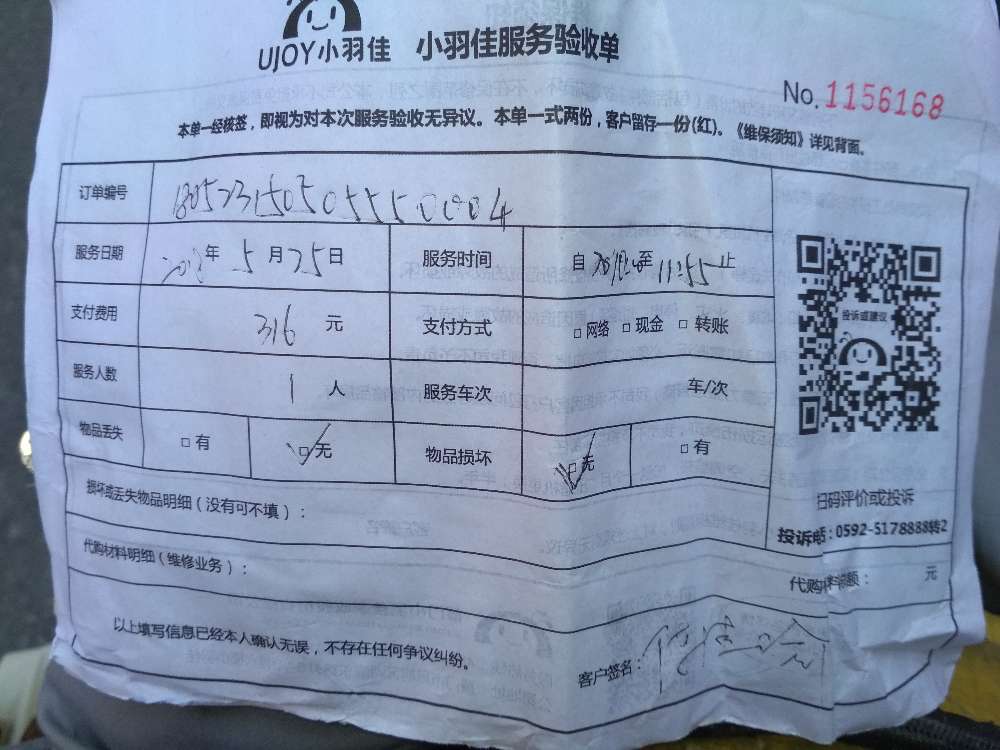 UJOY小羽佳 小羽佳服务验收单
No. 1156168
本单一经核签，即视为对本次服务验收无异议。本单一式两份，客户留存一份(红)。《维保须知》详见背面。
订单编号
服务日期 2018年 5月 25日 服务时间 自 至 11:55 止
支付费用 316 元 支付方式 □网络 □现金 □转账
服务人数 1 人 服务车次 车/次
物品丢失 □有 □无 物品损坏 □无 □有
投诉或建议
扫码评价或投诉
投诉电话：0592-5178888转2
损坏或丢失物品明细（没有可不填）：
代购材料明细（维修业务）：
代购材料金额： 元
以上填写信息已经本人确认无误，不存在任何争议纠纷。
客户签名：